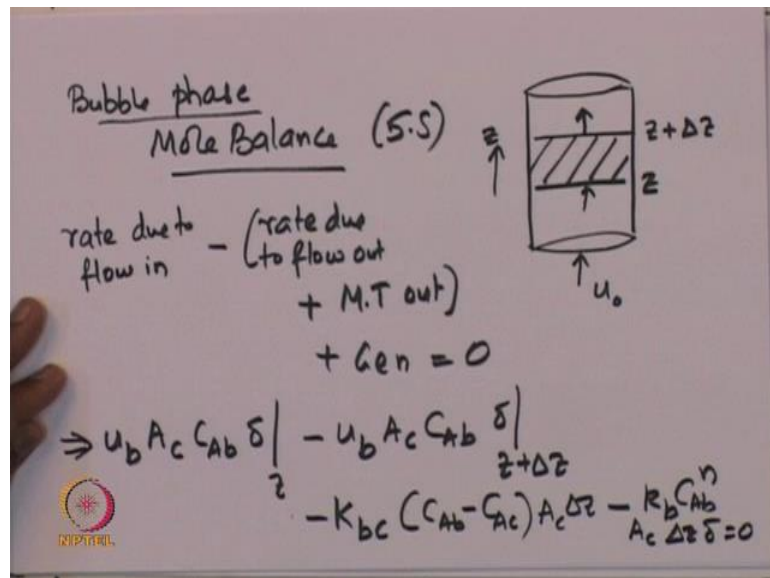 Bubble phase
Mole Balance (S.S)
z
z+Δz
z
u₀
rate due to flow in - (rate due to flow out
+ M.T out)
+ Gen = 0
⇒ u_b A_c C_Ab δ|_z - u_b A_c C_Ab δ|_z+Δz
- K_bc (C_Ab - C_Ac) A_c Δz - k_b C_Ab^n
A_c Δz δ = 0
NPTEL